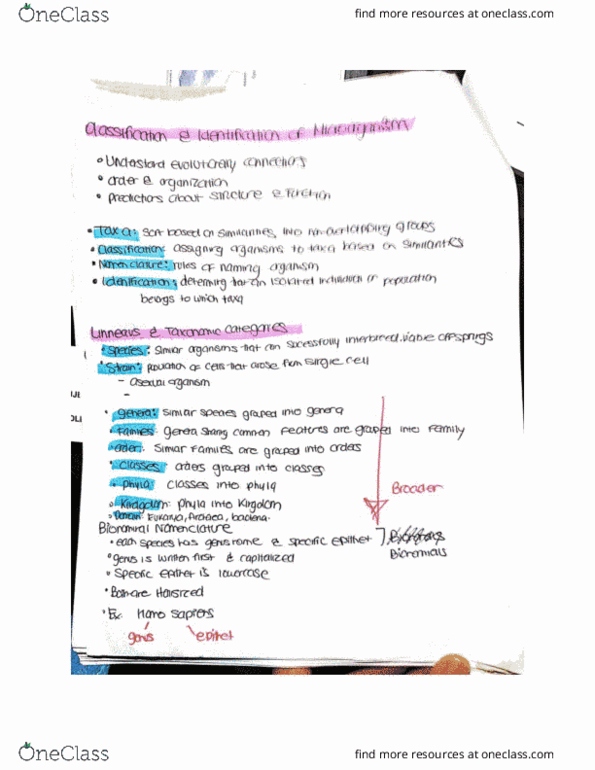 OneClass
find more resources at oneclass.com
Classification & Identification of Microrganism
• Understand evolutionary connections
• order & organization
• predictions about structure & function
• Taxa: sort based on similarities, into non-overlapping groups
• Classification: assigning organisms to taxa based on similarities
• Nomenclature: rules of naming organism
• Identification: determing that an isolated individual or population
belongs to which taxa
Linneaus & Taxonomic Categories
• Species: Similar organisms that can sucessfully interbreed viable offsprings
• Strain: population of cells that arose from single cell
- Asexual organism
-
• genera: Similar species grouped into genera
• Families: Genera sharing common features are grouped into Family
• order: Similar Families are grouped into orders
• Classes: orders grouped into classes
• Phyla: Classes into phyla
• Kindgdom: Phyla into Kingdom
• Domain: Eukarya, Archaea, bacteria.
Broader
Bionomial Nomenclature
• each species has genus name & specific epithet
Binomials
• genus is written first & capitalized
• Specific epithet is lowercase
• Both are Italisized
• Ex: Homo Sapiens
genus epithet
OneClass
find more resources at oneclass.com